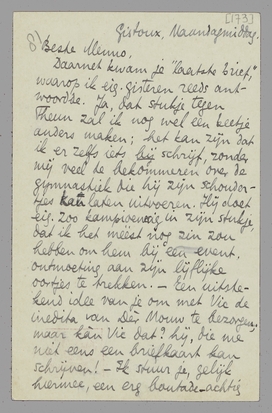 [173]
8)
Gistoux, Maandagmiddag.
Beste Menno,
Daarnet kwam je "laatste brief",
waarop ik eig. gisteren reeds ant-
woordde. Ja, dat stukje tegen
Theun zal ik nog wel een beetje
anders maken; het kan zijn dat
ik er zelfs iets bij schrijf, zonder
mij veel te bekommeren over de
gymnastiek die hij zijn schouder-
tjes kan laten uitvoeren. Hij doet
eig. zoo kampioenig in zijn stukje,
dat ik het méést nog zin zou
hebben om hem bij een event.
ontmoeting aan zijn lijflijke
oortjes te trekken. — Een uitste-
kend idee van je om met Vic de
inedita van Dèr Mouw te bezorgen,
maar kàn Vic dat? hij, die me
niet eens een briefkaart kan
schrijven! — Ik stuur je, gelijk
hiermee, een erg boutade-achtig